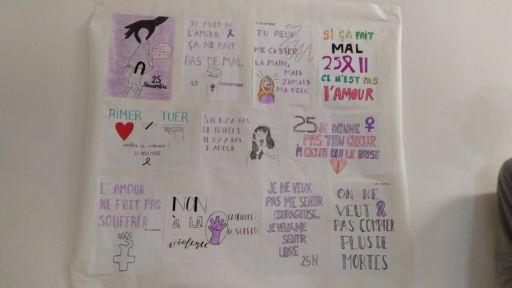 25
Novembre
SI C'EST DE
L'AMOUR
ÇA NE FAIT
PAS DE MAL
25
NOVEMBRE
TU PEUX
ME CASSER
LA MAIN,
MAIS
JAMAIS
MA VOIX
SI ÇA FAIT
MAL
25 11
CE N'EST PAS
L'AMOUR
AIMER
/
TUER
S'IL N'Y A PAS
DE RESPECT
IL N'Y A PAS
D'AMOUR
25 NE DONNE
PAS TON CŒUR
À CELUI QUI LE BRISE
L'AMOUR
NE FAIT PAS
SOUFFRIR
NON
à LA
violence
JE NE VEUX
PAS ME SENTIR
COURAGEUSE...
JE VEUX ME
SENTIR
LIBRE
25N
ON NE
VEUT
PAS COMPTER
PLUS DE
MORTES